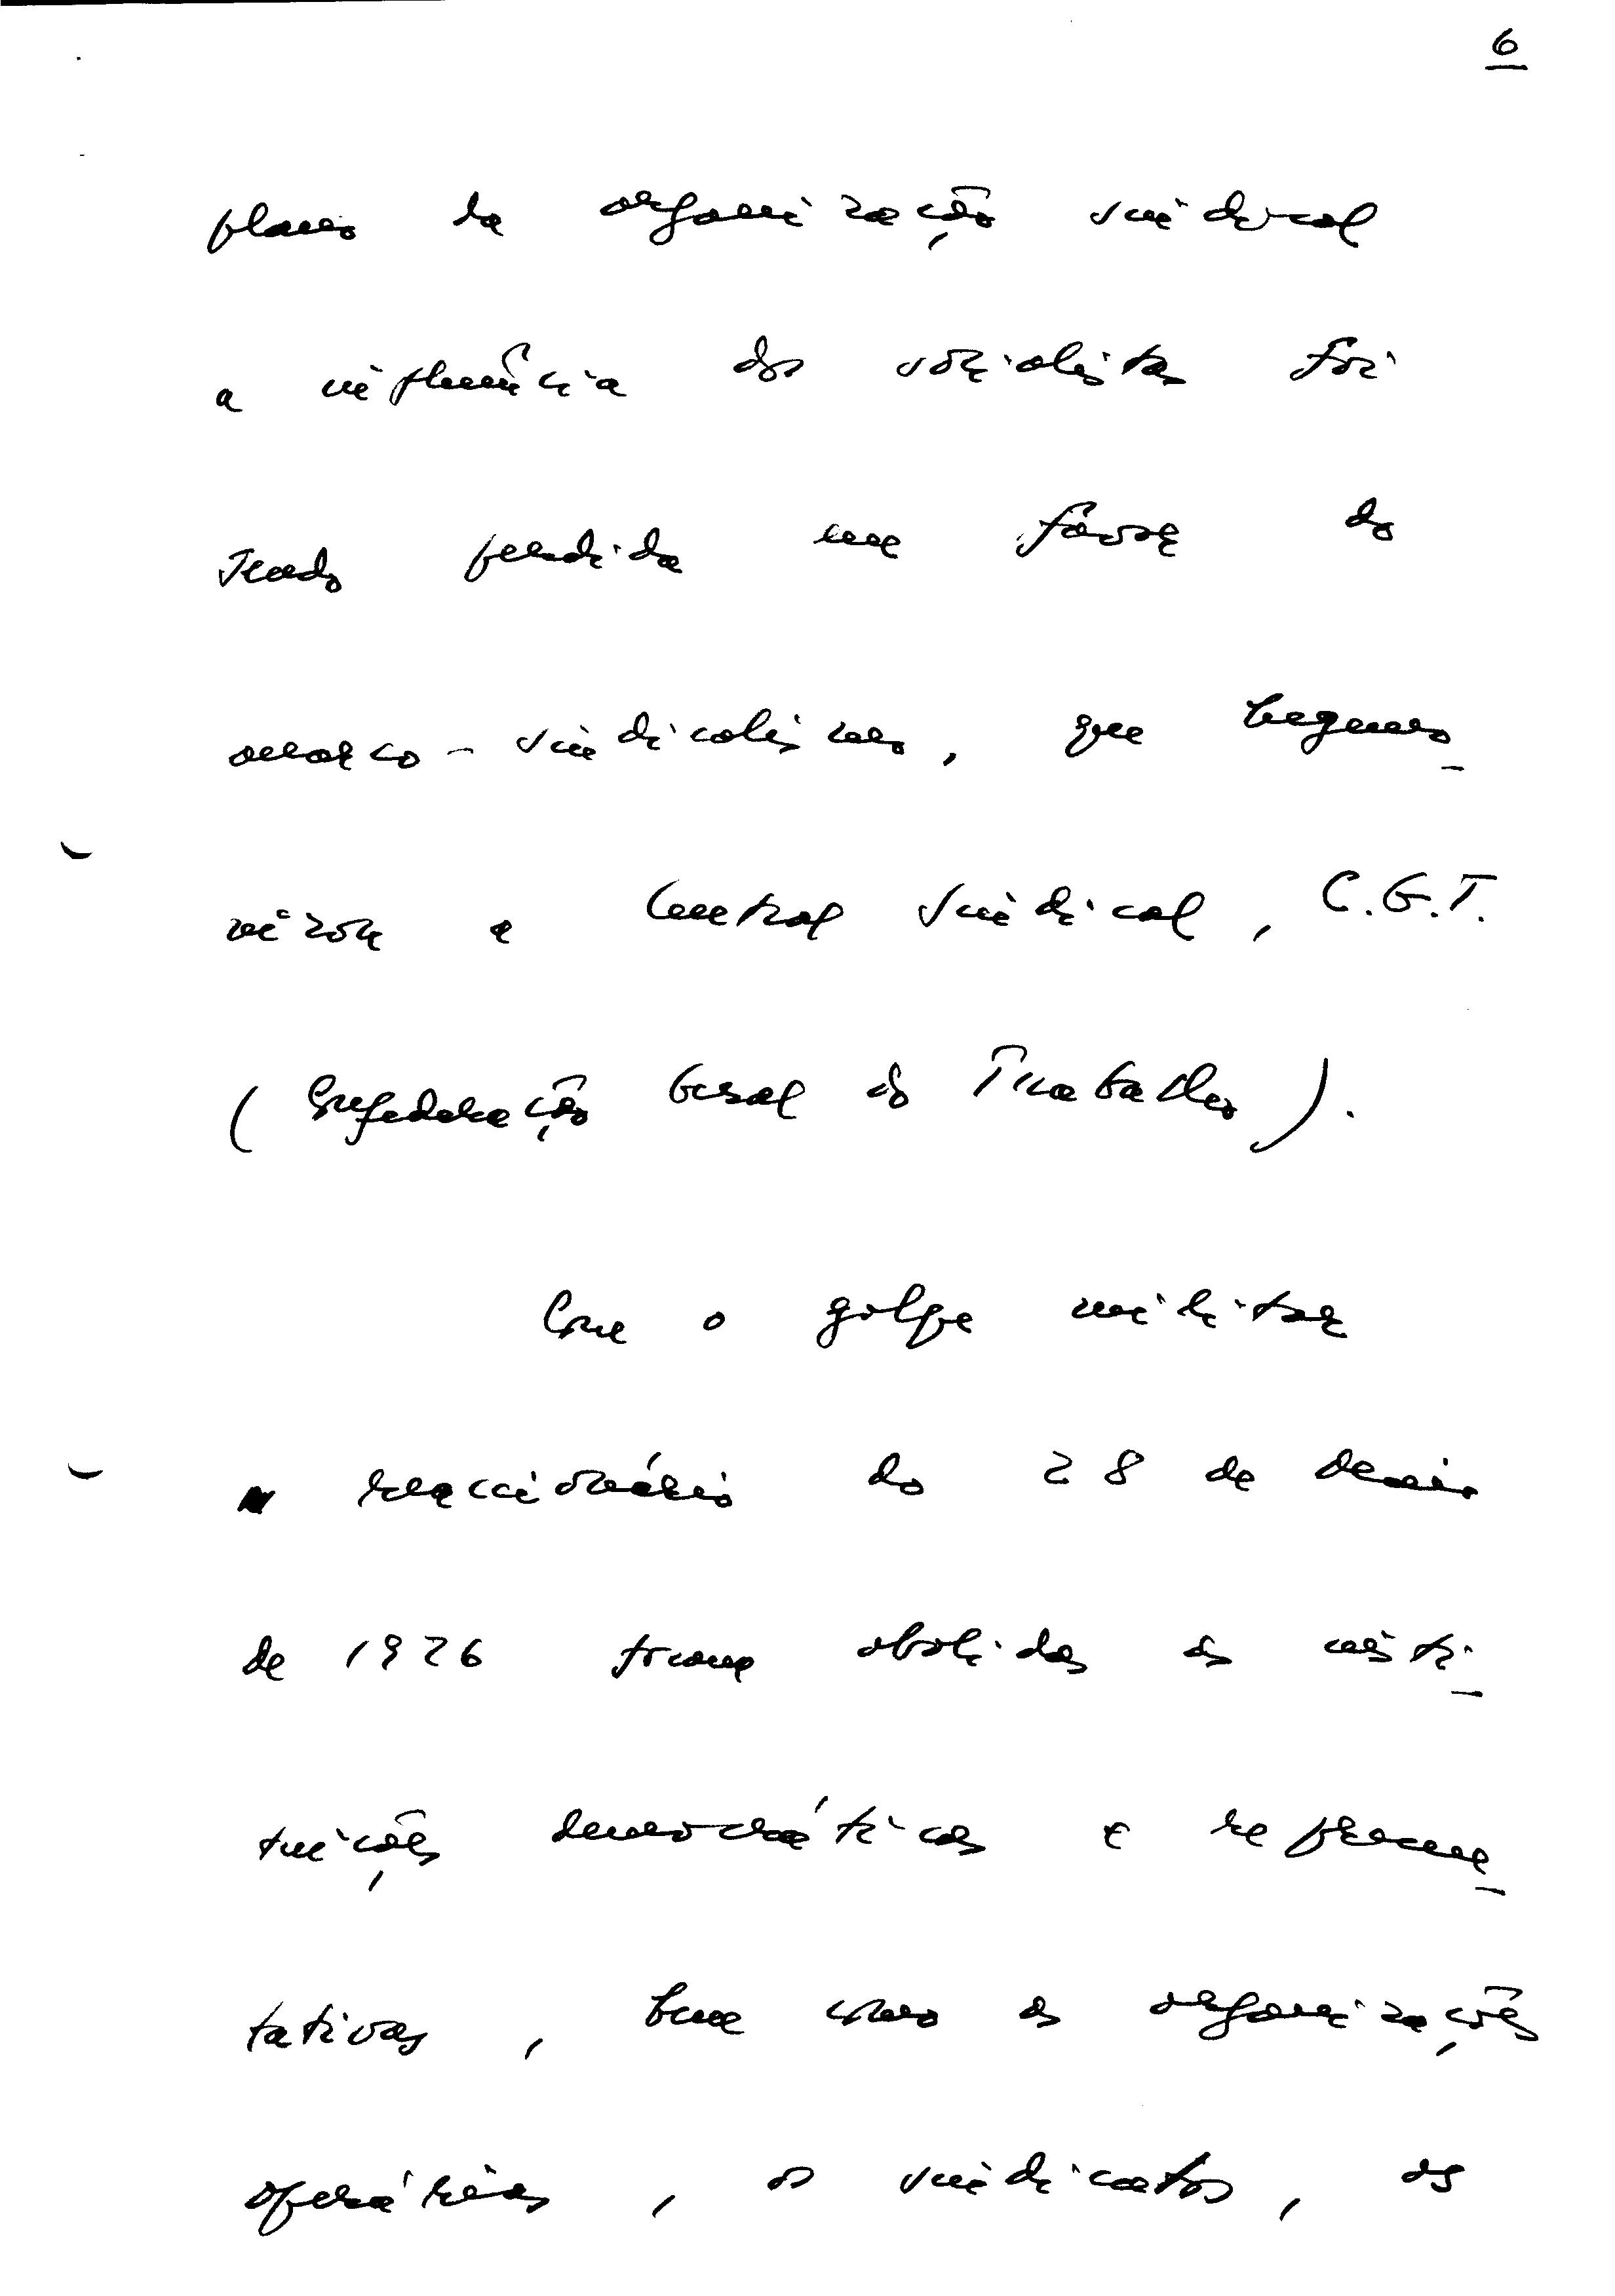 6
plano da organização sindical
a influência dos socialistas foi
sendo perdida em favor do
anarco-sindicalismo, que hegemo_
nizou a Central Sindical, C.G.T.
(Confederação Geral do Trabalho).
Com o golpe militar
reaccionário do 28 de Maio
de 1926 foram abolidas as insti_
tuições democráticas e represen_
tativas, bem como as organizações
operárias, os sindicatos, os